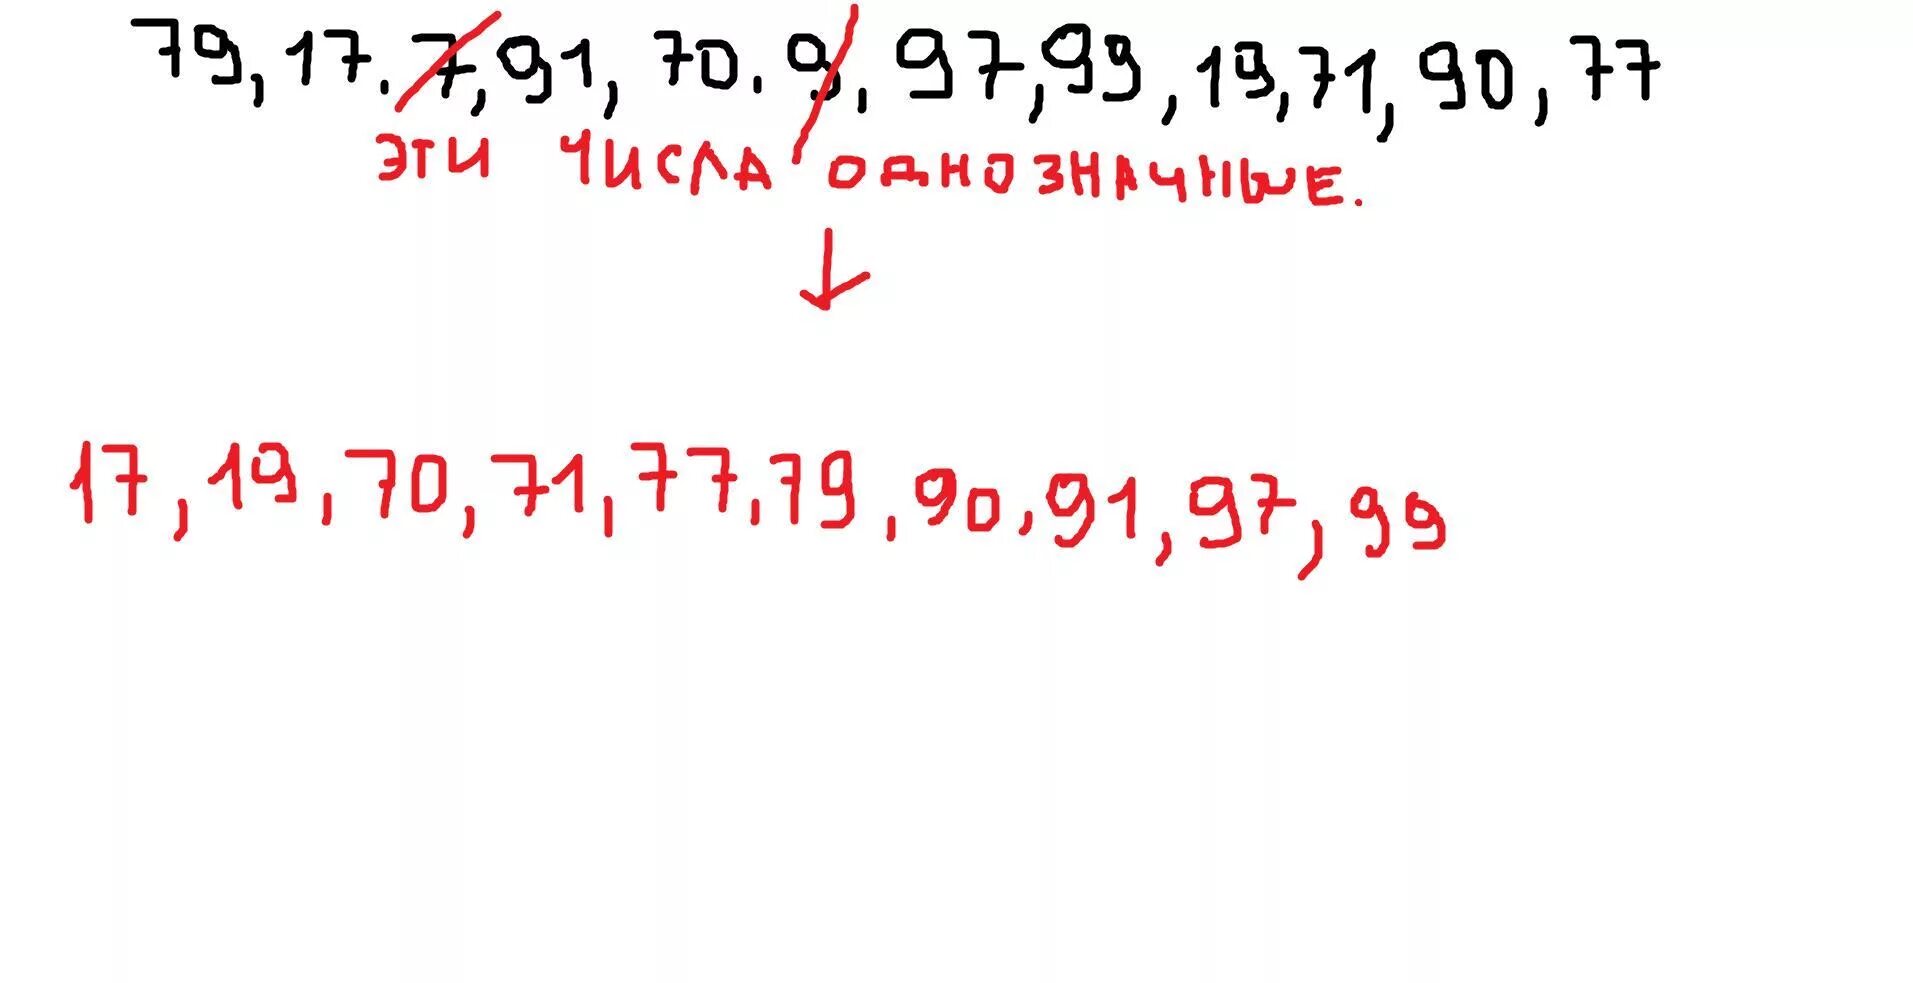 79, 17. 7, 91, 70. 9, 97, 99, 19, 71, 90, 77
ЭТИ ЧИСЛА ОДНОЗНАЧНЫЕ.
17, 19, 70, 71, 77, 79, 90, 91, 97, 99